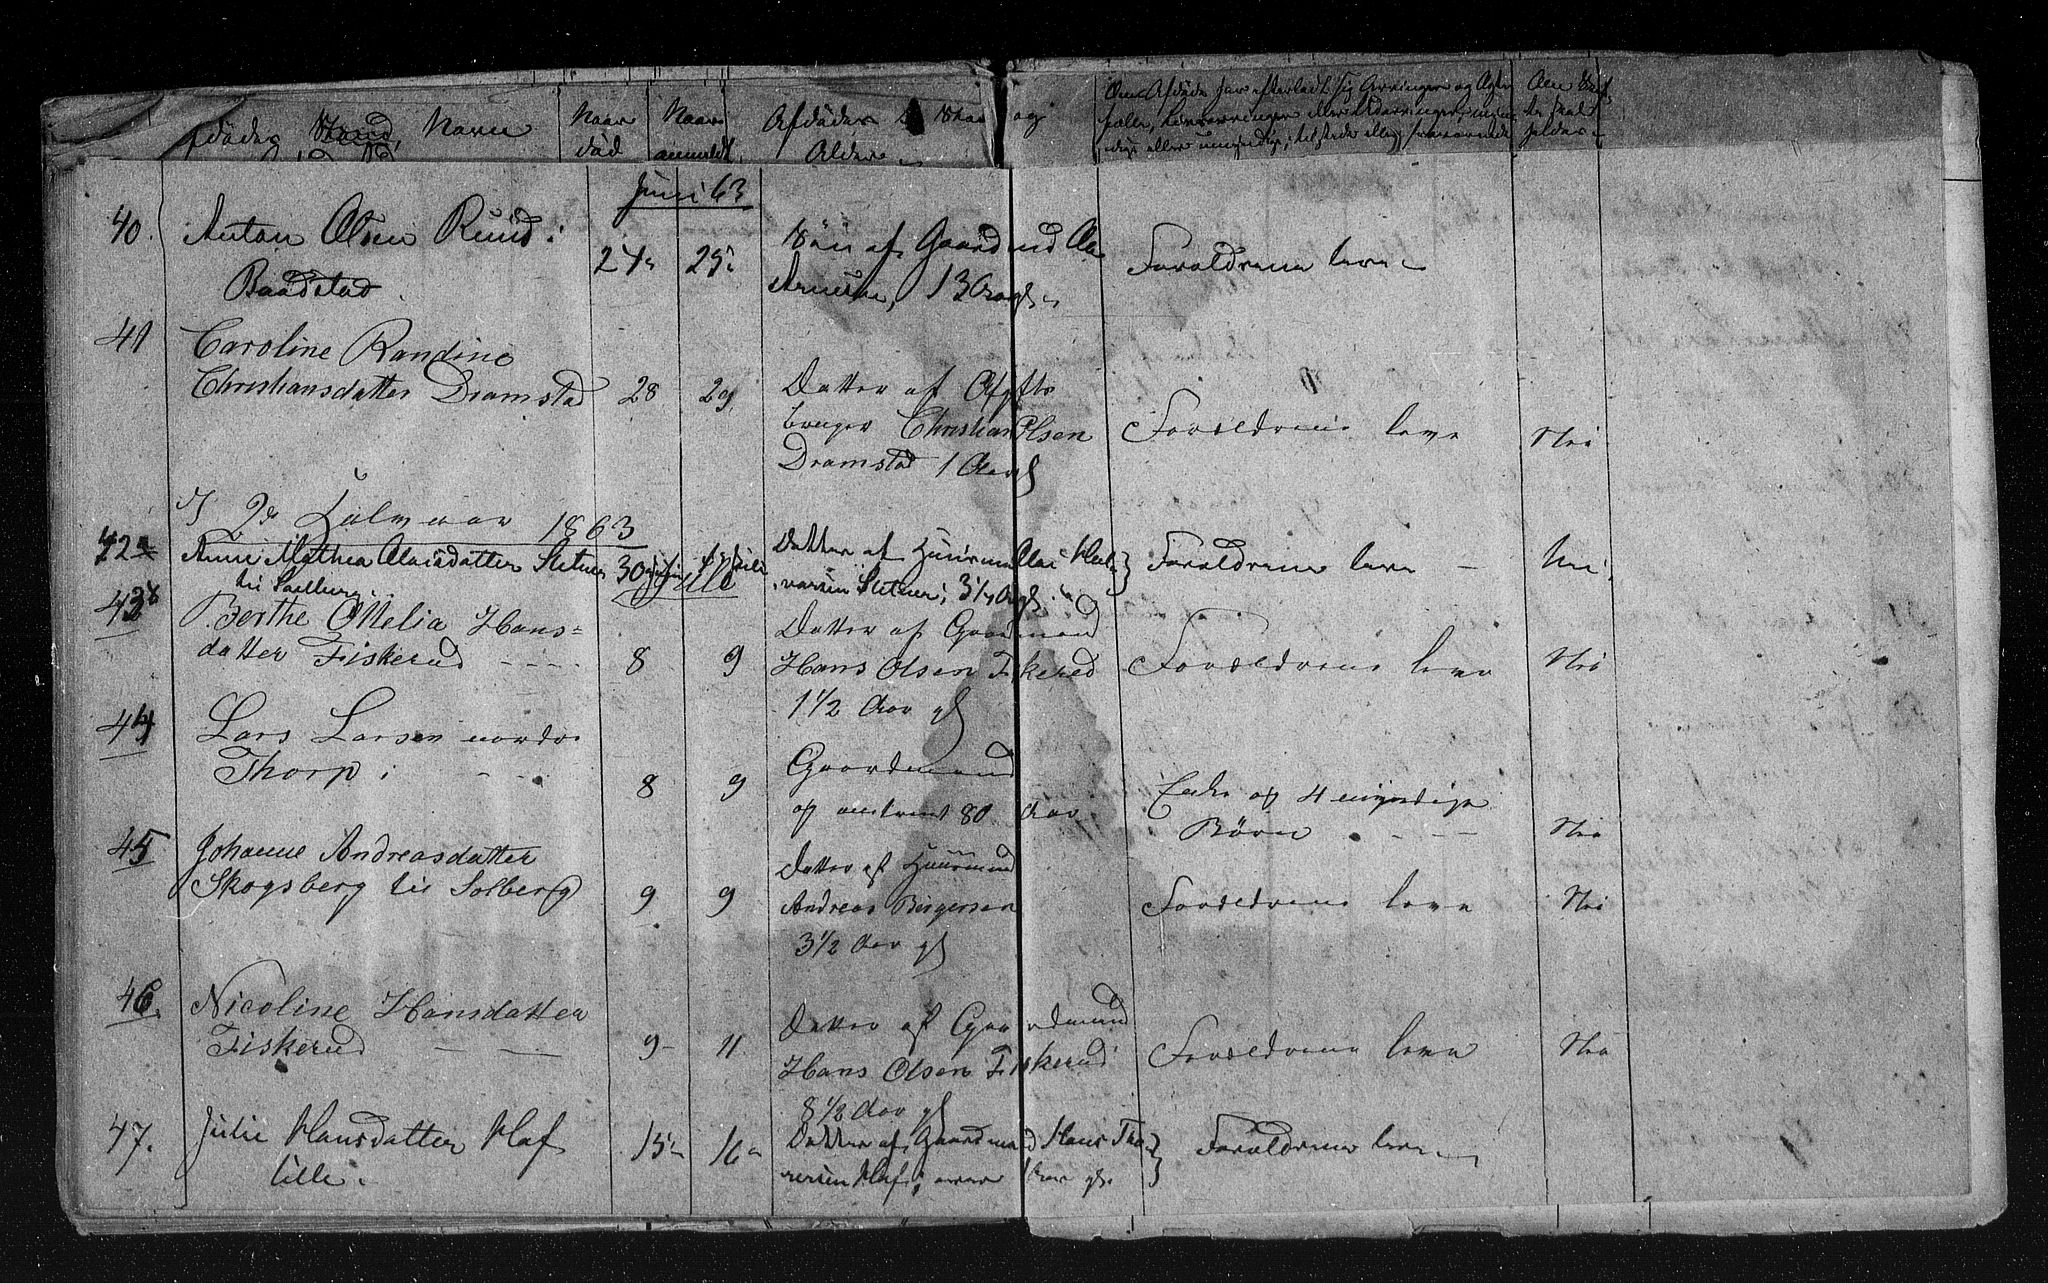 Afdödes Stand, Navn
Naar död
Naar anmeldt
Afdödes Stand og Alder
Om Afdöde har efterladt sig Arvinger og Ægte
fælle, Livsarvinger eller Udarvinger, myn
dige eller umyndige, tilstede eller fraværende
Juni 63
40. Anton Olsen Ruud i Baadstad. 24 25 Sön af Gaardmd Ole
Arnesen, 13 Aar gl. Forældrene leve
41 Caroline Randine
Christiansdatter Dramstad 28 29 Datter af Afgifts
bruger Christian Olsen
Dramstad 1 Aar gl
Forældrene leve Nei
I 2det Halvaar 1863
42 Anne Mathea Olaisdatter Sletner 30 Juni Juli
Datter af Huusmd Olai Hal
varsen Sletner; 3 1/4 Aar gl.
Forældrene leve Nei
Juli
43 Berthe Ottelia Hans=
datter Fiskerud 8 9 Datter af Gaardmand
Hans Olsen Fiskerud
1 1/2 Aar gl
Forældrene leve Nei
44 Lars Larsen nordre
Thorp 8 9 Gaardmand
og omtrent 80 Aar
Enke og 4 myndige
Börn Nei
45 Johanne Andreasdatter
Skogsberg til Solberg 9 9 Datter af Huusmand
Andreas Birgersen
3 1/2 Aar gl
Forældrene leve Nei
46. Nicoline Hansdatter
Fiskerud 9 11 Datter af Gaardmand
Hans Olsen Fiskerud
8 1/2 Aar gl
Forældrene leve Nei
47. Julie Hansdatter Haf
lille. 15 16 Datter af Gaardmand Hans Tho
resen Haf; Aar gl.
Forældrene leve